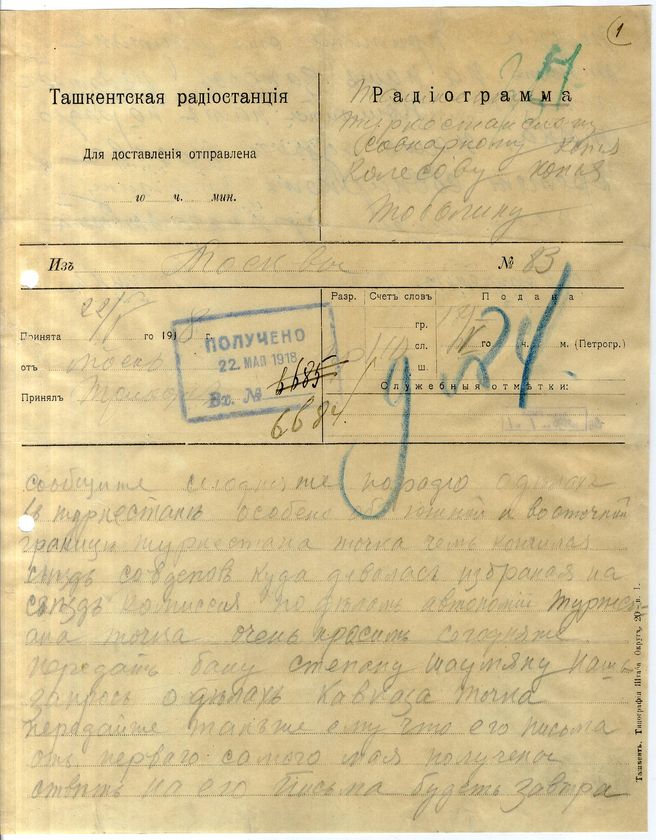 1
Ташкентская радіостанція
Для доставленія отправлена
го ч. мин.
Радіограмма
Совнаркому копя
Колесову копья
Тоболину
Изъ Москвы № 83
Принята 22/V го 1918 г.
отъ Москв
Принялъ
ПОЛУЧЕНО
22. МАЯ 1918
Вх. №
6685
6684
Разр. Счетъ словъ Подана
гр.
сл. го ч. м. (Петрогр.)
ш.
Служебныя отмѣтки:
сообщите сегодняже порадіо одѣлахъ
в туркестанѣ особено об южной и восточной
границы туркестана точка чемъ кончился
съѣздъ совдепов куда дѣвалась избраная на
съѣздѣ комиссия по дѣламъ автономій туркес-
ана точка очень просимъ сегодняже
передать баку степану шаумяну нашъ
запросъ одѣлахъ Кавказа точка
передайте такъже ему что его письма
отъ перваго самого мая получены
ответъ на его письма будетъ завтра
Ташкентъ. Типографія Штаба Округа. 20—в 1.